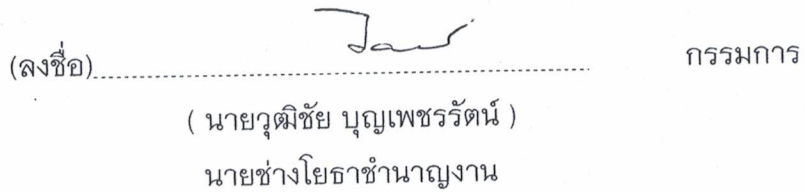 (ลงชื่อ)........................................................ กรรมการ
( นายวุฒิชัย บุญเพชรรัตน์ )
นายช่างโยธาชำนาญงาน